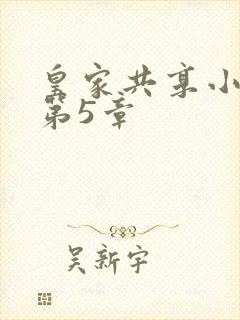 皇家共享小
第5章
吴新宇